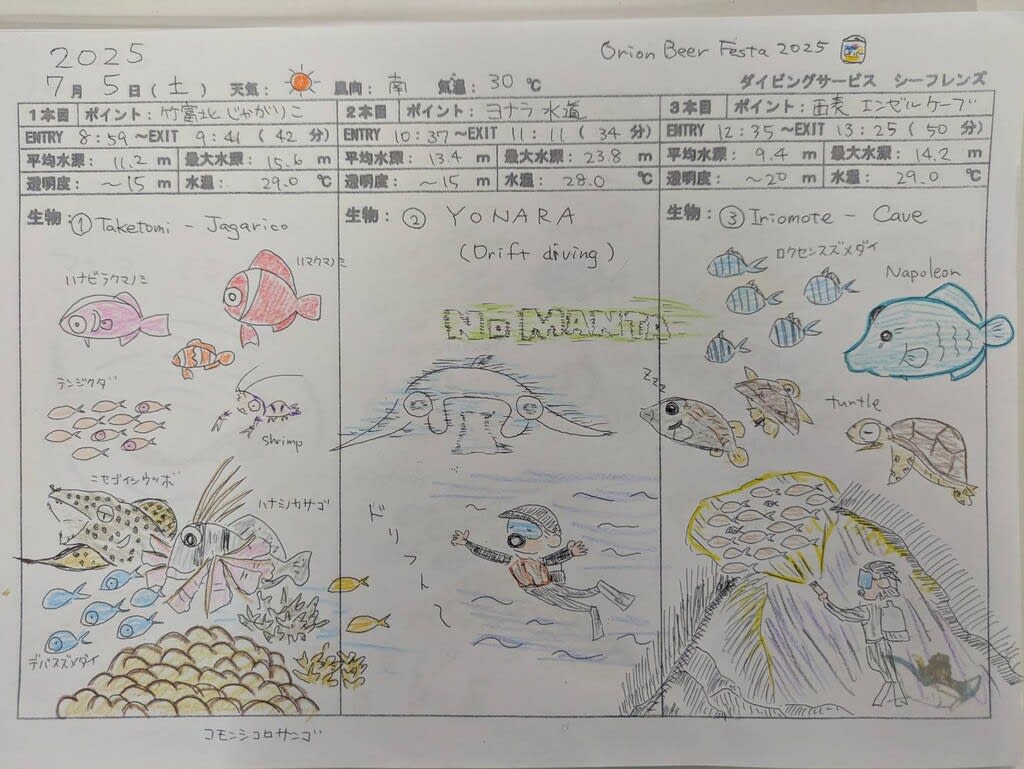 2025
Orion Beer Festa 2025
7月 5日(土) 天気: 風向: 南 気温: 30 ℃
ダイビングサービス シーフレンズ
1本目 ポイント: 竹富北 じゃがりこ
ENTRY 8:59 ~EXIT 9:41 ( 42 分)
平均水深: 11.2 m 最大水深: 15.6 m
透明度: ~15 m 水温: 29.0 ℃
生物: ① Taketomi - Jagarico
ハナビラクマノミ
ハマクマノミ
テンジクダ
shrimp
ニセゴイシウツボ
ハナミノカサゴ
デバスズメダイ
コモンシコロサンゴ
2本目 ポイント: ヨナラ水道
ENTRY 10:37 ~EXIT 11:11 ( 34 分)
平均水深: 13.4 m 最大水深: 23.8 m
透明度: ~15 m 水温: 28.0 ℃
生物: ② YONARA
(Drift diving)
No MANTA
ドリフト~
3本目 ポイント: 西表 エンゼルケーブ
ENTRY 12:35 ~EXIT 13:25 ( 50 分)
平均水深: 9.4 m 最大水深: 14.2 m
透明度: ~20 m 水温: 29.0 ℃
生物: ③ Iriomote - Cave
ロクセンスズメダイ
Napoleon
zzz
turtle